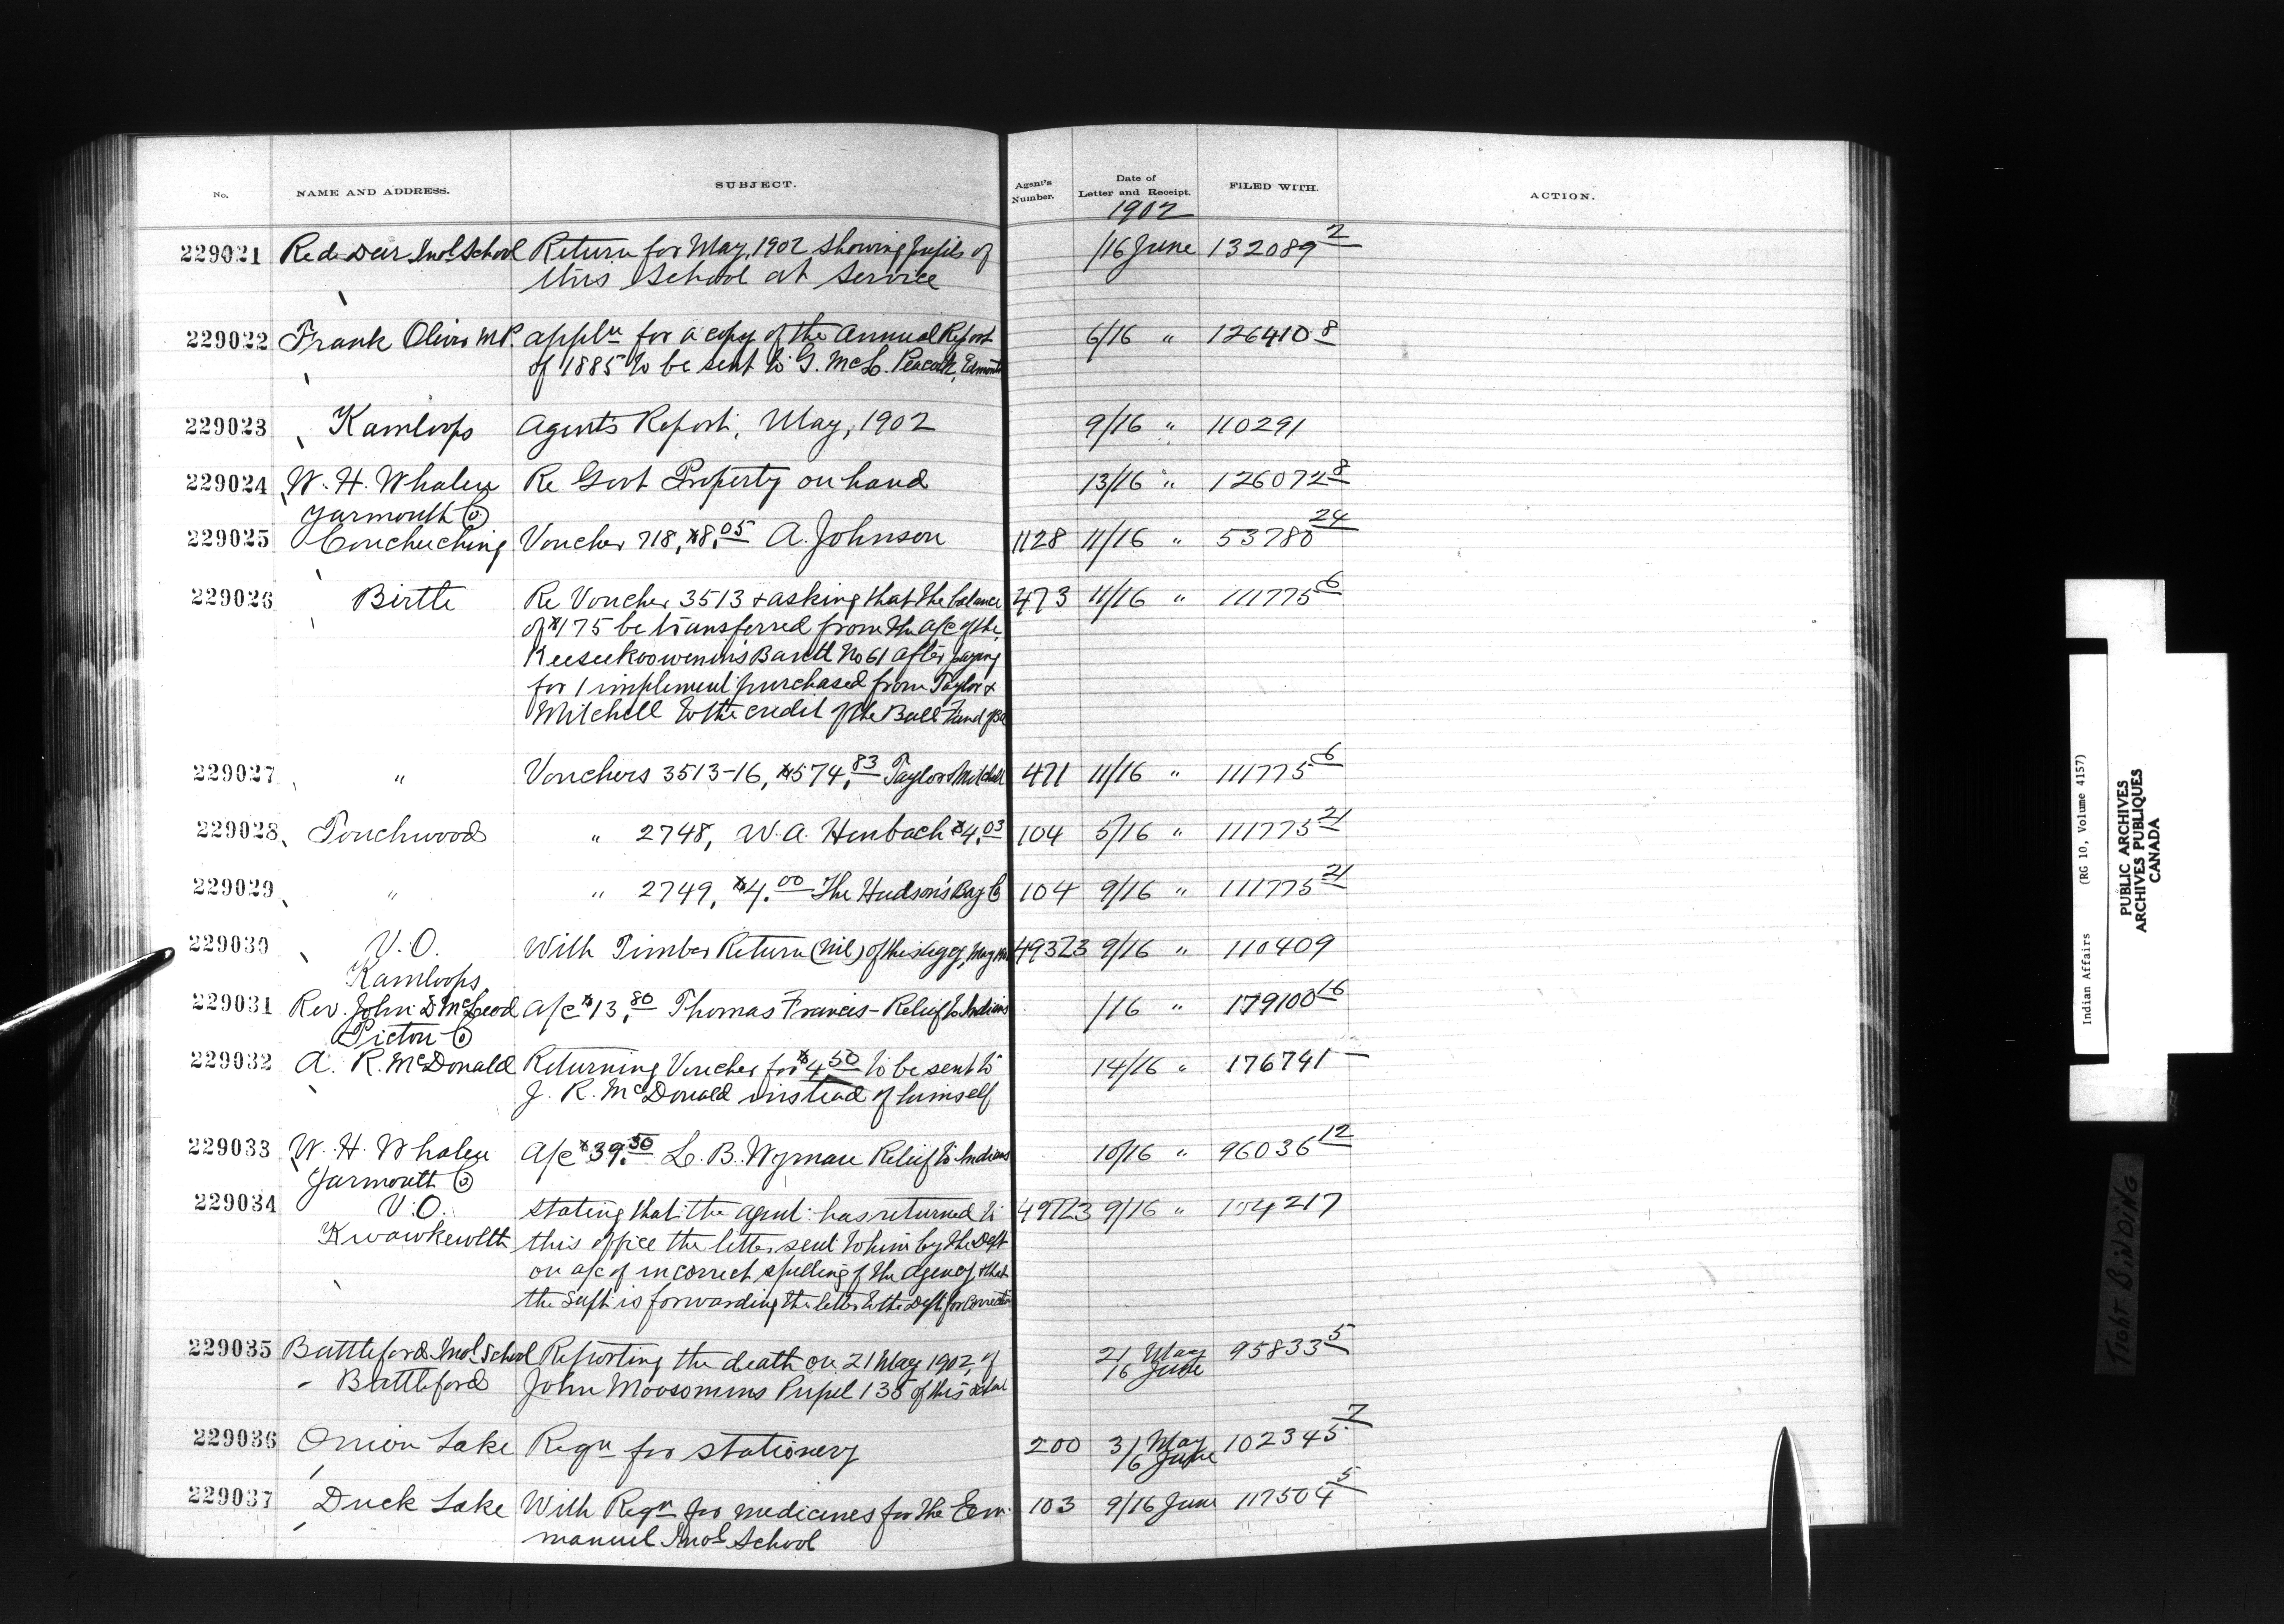 No. NAME AND ADDRESS. SUBJECT. Agent's Number. Date of Letter and Receipt. FILED WITH. ACTION.
1902
229021 Red Deer Indl School Return for May, 1902 showing pupils of /16 June 132089 2
this School at Service
229022 Frank Oliver M.P. appln for a copy of the Annual Report 6/16 " 126410 8
of 1885 to be sent to G. McL. Peacock, Edmonto
229023 Kamloops Agents Report, May, 1902 9/16 " 110291
229024 W. H. Whalen Re Govt Property on hand 13/16 " 126072 8
Yarmouth Co
229025 Couchuching Voucher 718, $8.05 A. Johnson 1128 11/16 " 53780 24
229026 Birtle Re Voucher 3513 & asking that the balance 473 11/16 " 111775 6
of $175 be transferred from the a/c of the
Keeseekoowenins Band No 61 after paying
for 1 implement purchased from Taylor &
Mitchell to the credit of the Bull Fund of Ba
229027 " Vouchers 3513-16, $574.83 Taylor & Mitchell 471 11/16 " 111775 6
229028 Touchwood " 2748, W. A. Henbach $4.03 104 5/16 " 111775 21
229029 " " 2749, $4.00 The Hudson's Bay Co 104 9/16 " 111775 21
229030 V.O. With Timber Return (nil) of this Agcy, May 493/23 9/16 " 110409
Kamloops
229031 Rev. John D McLeod a/c $13.80 Thomas Francis - Relief to Indians /16 " 179100 16
Pictou Co
229032 A. R. McDonald Returning Voucher for $4.50 to be sent to 14/16 " 176741
J. R. McDonald instead of himself
229033 W. H. Whalen a/c $39.50 L. B. Wyman Relief to Indians 10/16 " 96036 12
Yarmouth Co
229034 V.O. stating that the agent has returned to 497/23 9/16 " 104217
Kwawkewlth this office the letter sent to him by the Dept
on a/c of incorrect spelling of the agency & that
the Supt is forwarding the letter to the Dept for correction
229035 Battleford Indl School Reporting the death on 21 May 1902, of 21 May 95833 5
Battleford John Moosomins Pupil 135 of this School 16 June
229036 Onion Lake Reqn for stationery 200 31 May 102345 7
16 June
229037 Duck Lake With Reqn for medicines for the Em- 103 9/16 June 117504 5
manuel Indl School
Indian Affairs (RG 10, Volume 4157)
PUBLIC ARCHIVES
ARCHIVES PUBLIQUES
CANADA
TIGHT BINDING